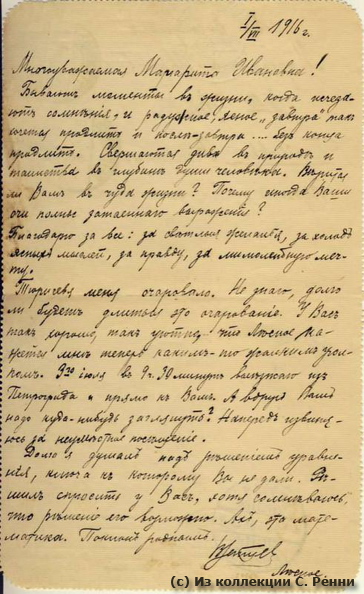 I/VII 1916 г.
Многоуважаемая Маргарита Ивановна!
Бываютъ моменты въ жизни, когда исчеза-
ютъ сомнѣнія, и радужное, ясное „завтра" такъ
хочется продлить и послѣ-завтра .... безъ конца
продлить. Свершаются дива въ природѣ и
таинства въ глубинѣ души человѣка. Вѣрите
ли Вамъ въ чуда жизни? Почему иногда Ваши
очи полны затаеннаго выраженія?
Благодарю за все: за свѣтлыя желанія, за холодъ
ясныхъ мыслей, за правду, за мимолетную меч-
ту.
меня очаровало. Не знаю, долго
ли будетъ длиться это очарованіе. У Васъ
такъ хорошо, такъ уютно, что Лѣсное ка-
жется мнѣ теперь какимъ-то жалкимъ
3го іюля въ 9 ч. 30 минутъ выѣзжаю изъ
Петрограда и прямо къ Вамъ. А вдругъ Вамъ
надо куда-нибудь заглянуть? Напередъ извиня-
юсь за неумѣстное посѣщеніе.
Долго я думалъ надъ рѣшеніемъ уравне-
нія, ключа къ которому Вы не дали. Рѣ-
шилъ спросить у Васъ, хотя сомнѣваюсь,
что рѣшеніе его возможно. это мате-
матика. Поклонъ роднымъ.
Лѣсное.
(c) Из коллекции С. Ренни